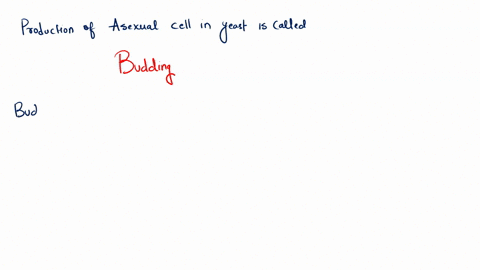 Production of Asexual cell in yeast is called
Budding
Bud